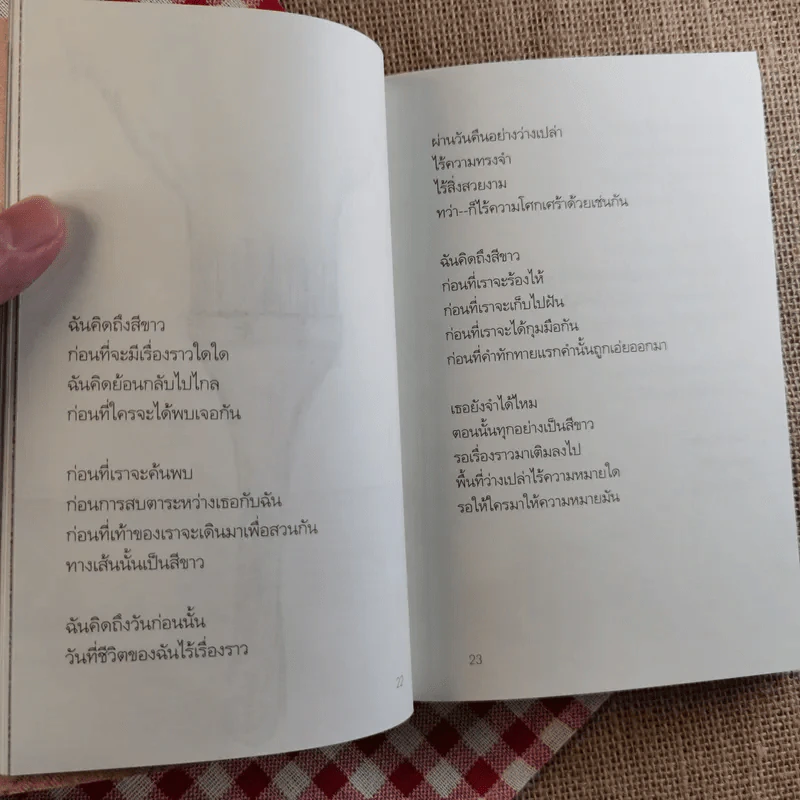 ฉันคิดถึงสีขาว
ก่อนที่จะมีเรื่องราวใดใด
ฉันคิดย้อนกลับไปไกล
ก่อนที่ใครจะได้พบเจอกัน
ก่อนที่เราจะค้นพบ
ก่อนการสบตาระหว่างเธอกับฉัน
ก่อนที่เท้าของเราจะเดินมาเพื่อสวนกัน
ทางเส้นนั้นเป็นสีขาว
ฉันคิดถึงวันก่อนนั้น
วันที่ชีวิตของฉันไร้เรื่องราว
22
ผ่านวันคืนอย่างว่างเปล่า
ไร้ความทรงจำ
ไร้สิ่งสวยงาม
ทว่า--ก็ไร้ความโศกเศร้าด้วยเช่นกัน
ฉันคิดถึงสีขาว
ก่อนที่เราจะร้องไห้
ก่อนที่เราจะเก็บไปฝัน
ก่อนที่เราจะได้กุมมือกัน
ก่อนที่คำทักทายแรกคำนั้นถูกเอ่ยออกมา
เธอยังจำได้ไหม
ตอนนั้นทุกอย่างเป็นสีขาว
รอเรื่องราวมาเติมลงไป
พื้นที่ว่างเปล่าไร้ความหมายใด
รอให้ใครมาให้ความหมายมัน
23